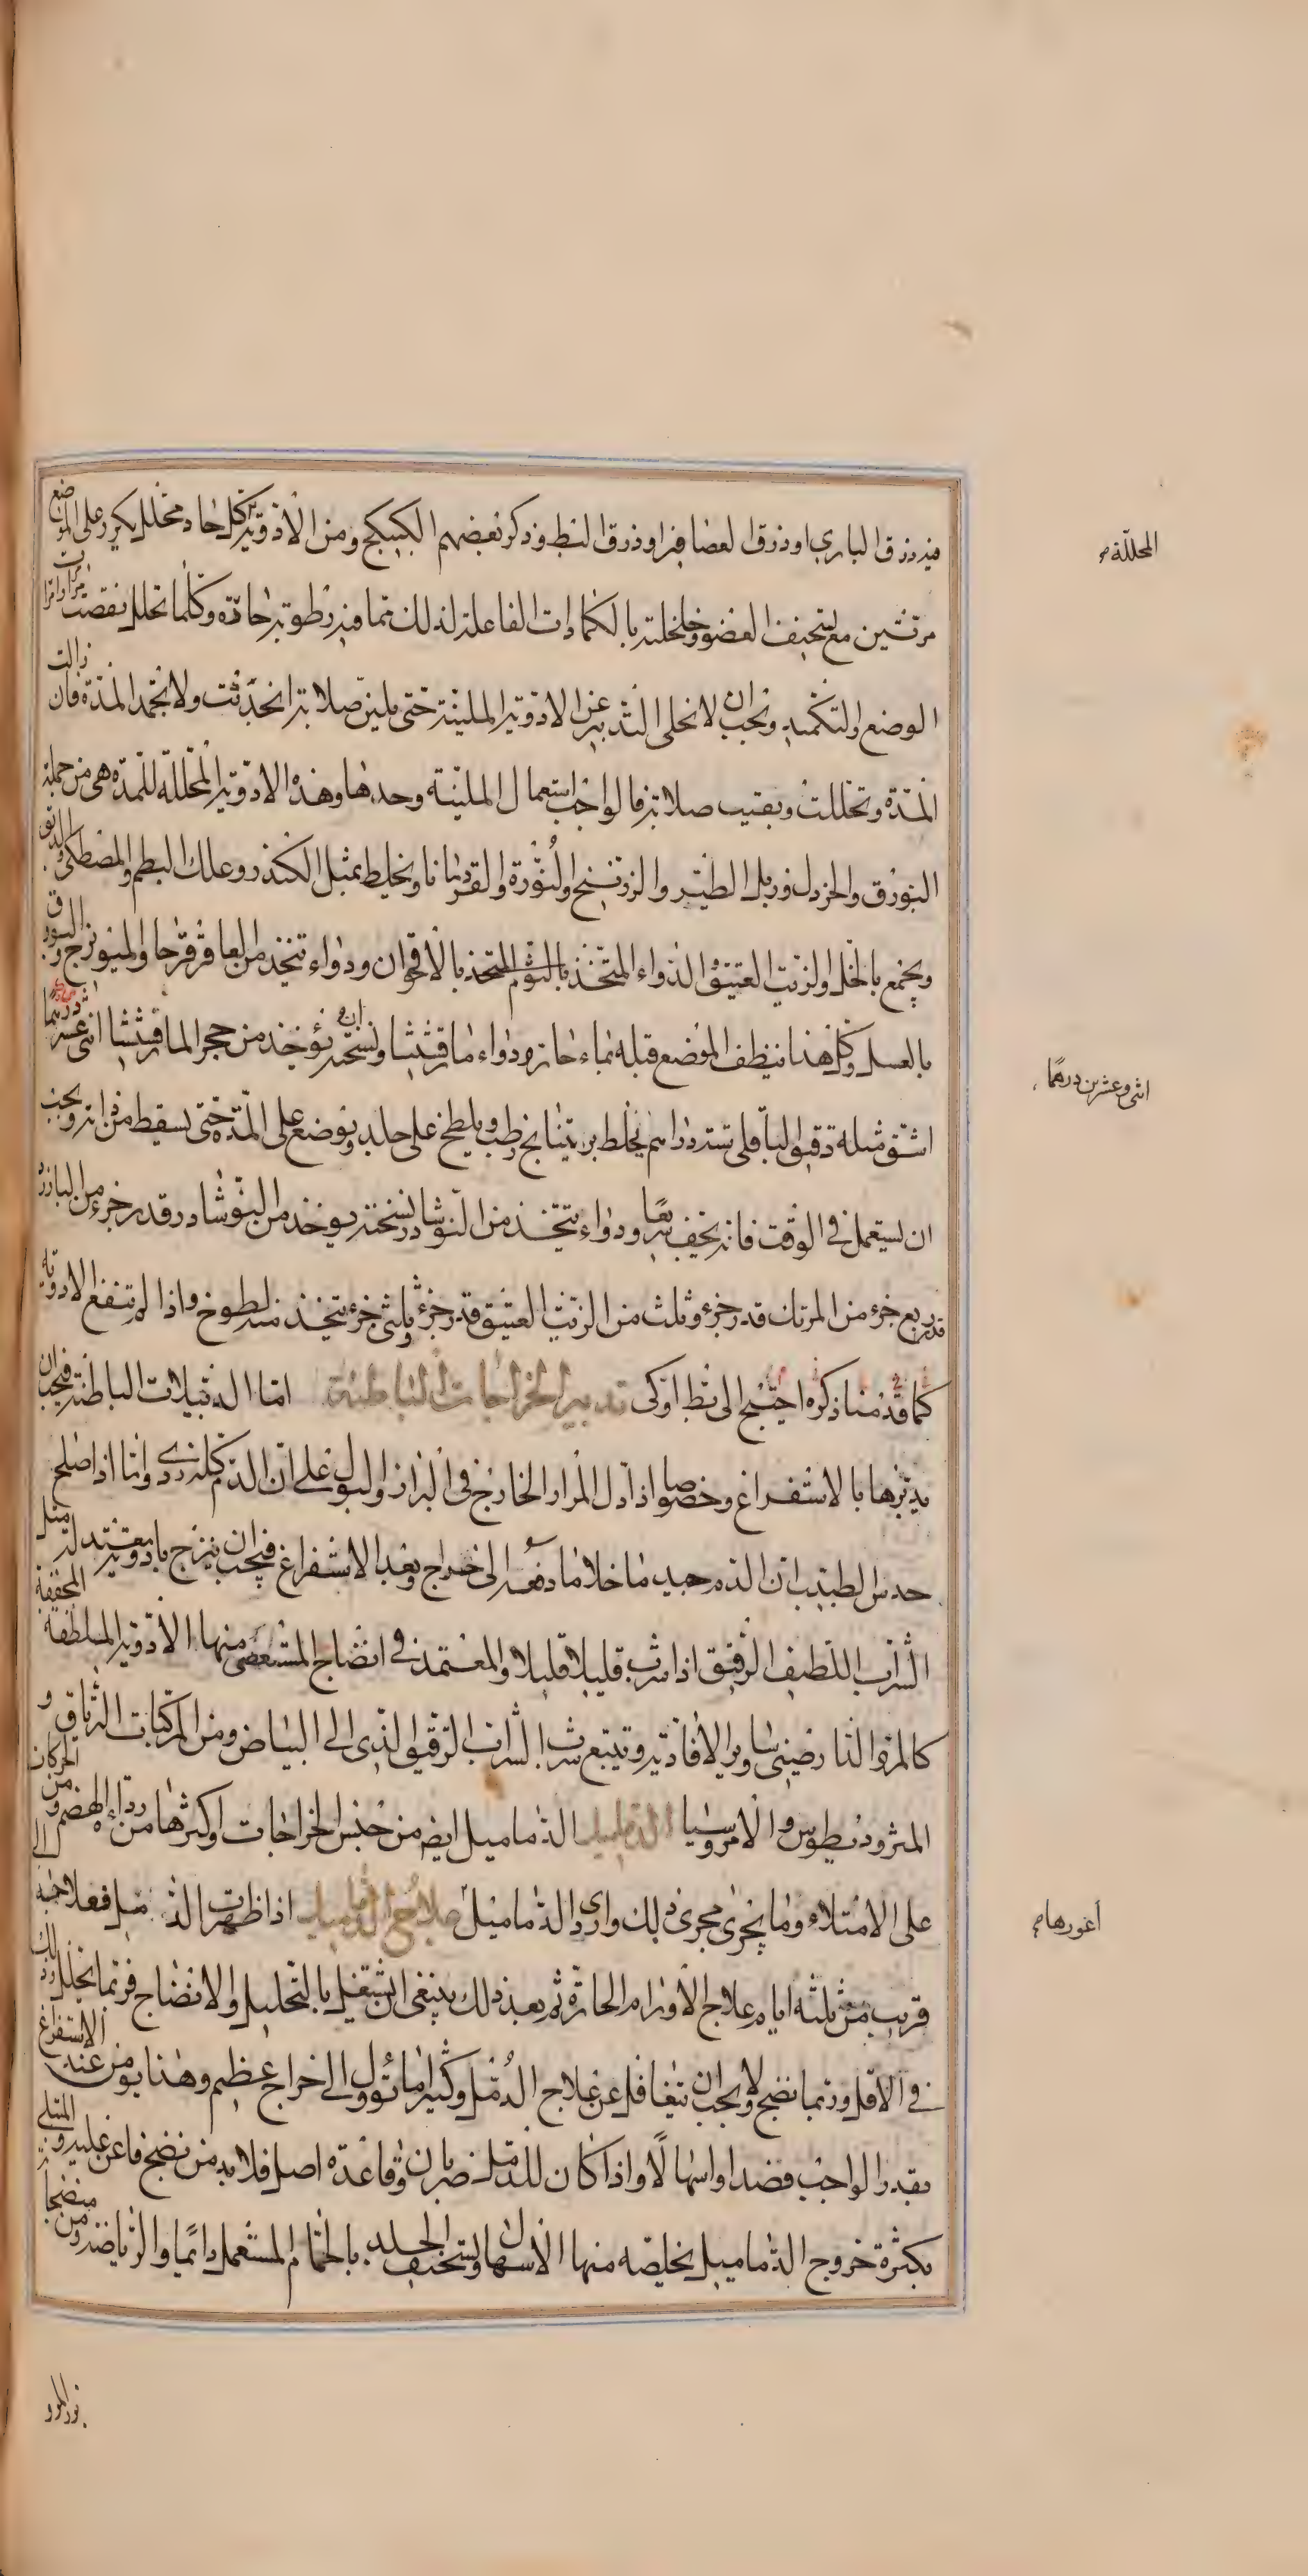 فيه ذرق البازي او ذرق العصافير او ذرق البط وذكر بعضهم الكبيكج ومن الادوية كل حاد محلل يكرر على الموضع
مرتين مع تسخيف العضو وخلخلته بالكمادات الفاعلة لذلك مما فيه رطوبة حادة وكلما تحلل نقصت مرات
الوضع او التكميد ويجب ان لا تخلى التدبير عن الادوية الملينة حتى يلين صلابة ان حدثت ولا تجمد المدة فان زالت
المدة وتحللت وبقيت صلابة فالواجب استعمال الملينة وحدها وهذه الادوية المحللة للمدة هي من جملة
البورق والخردل وزبل الطير والزرنيخ والنورة والقردمانا ويخلط بمثل الكندر وعلك البطم والمصطكى والدبق
ويجمع بالخل والزيت العتيق الدواء المتخذ بالثوم المتخذ بالاقحوان ودواء تتخذ من العاقرقرحا والميويزج والبورق
بالعسل وكل هذا ينظف الموضع قبله بماء حار ودواء مارقشيثا ونسخته ان يؤخذ من حجر المارقشيثا اثنى عشر درهما
اشق مثله دقيق الباقلى ستة دراهم يخلط براتينانج رطب ويلطخ على جلد ويوضع على المدة حتى يسقط من ذاته ويجب
ان يستعمل في الوقت فانه يجف سريعا ودواء يتخذ من النوشادر نسخته يوخذ من النوشادر قدر جزء من البازرد
قدر ربع جزء من المرتك قدر جزء وثلث من الزيت العتيق قدر جزء وثلثي جزء يتخذ منه لطوخ واذا لم تنفع الادوية
كما قدمنا ذكره احتيج الى بط او كى تدبير الخراجات الباطنة اما الدبيلات الباطنة فيجب ان
يدبرها بالاستفراغ وخصوصا اذا دل المرار الخارج في البراز والبول على ان الدم كله ردى وانما اذا صلح
حدس الطبيب ان الدم جيد ما خلا ما دفعه الى خراج وبعد الاستفراغ فيجب ان يمزج بادوية معتدلة مثل
الشراب اللطيف الرقيق اذا شرب قليلا قليلا والمعتمد في انضاج المستعصي منها الادوية الملطفة المجففة
كالمر والدارصيني وساير الافاوية وتتبع شرب الشراب الرقيق الذي الى البياض ومن المركبات الترياق و
المثروديطوس والامروسيا الدماميل الدماميل ايضا من جنس الخراجات واكثرها من رداءة الهضم ومن الحركات
على الامتلاء وما يجرى مجرى ذلك واردى الدماميل علاج الدماميل اذا ظهرت الدماميل فعلاجه الى
قريب من ثلثة ايام علاج الاورام الحارة ثم بعد ذلك ينبغي ان يشتغل بالتحليل والانضاج فربما تحلل وذلك
في الاقل وربما نضج ولا يجب ان يتغافل عن علاج الدمل وكثيرا ما تؤول الى خراج عظيم وهذا يؤمن عنه الاستفراغ
بقدر الواجب فصدا او اسهالا واذا كان للدمل ضربان وقاعدة اصل فلا بد من نضج فاعن عليه والمبتلى
بكثرة خروج الدماميل يخلصه منها الاسهال وتسخيف الجلد بالحمام المستعمل دائما والرياضة ومن منضجات
المحللة
اثنى وعشرين درهما
أغورها
بزر المرو